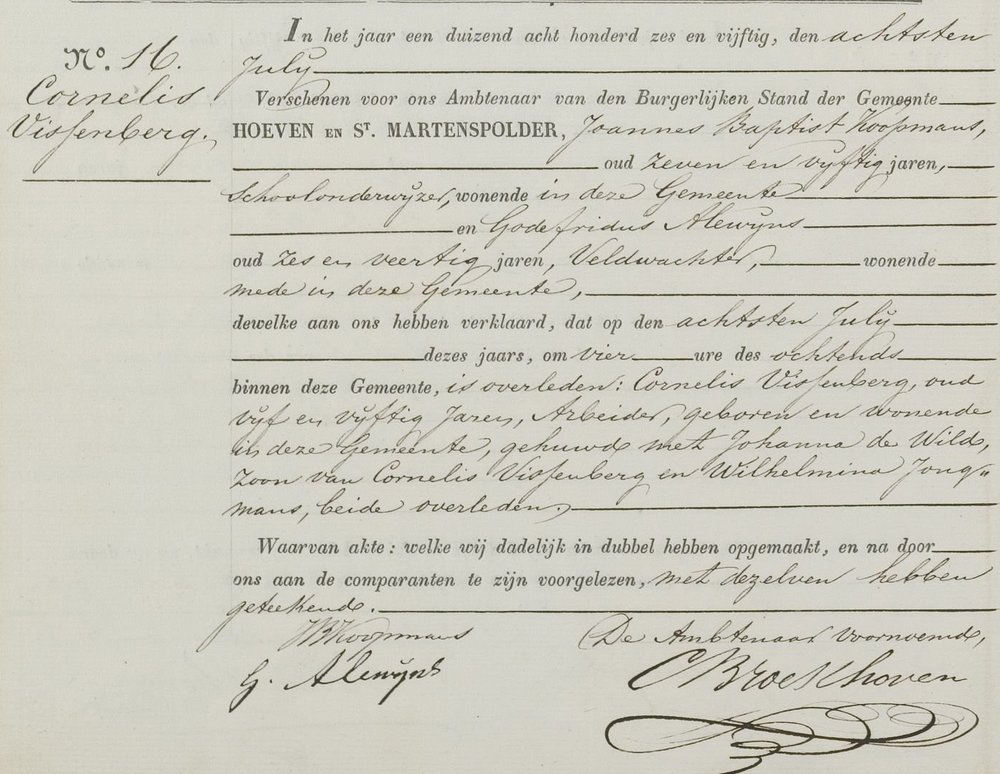 N°. 16.
Cornelis
Vissenberg.
In het jaar een duizend acht honderd zes en vijftig, den achtsten
July
Verschenen voor ons Ambtenaar van den Burgerlijken Stand der Gemeente
HOEVEN EN ST. MARTENSPOLDER, Joannes Baptist Koopmans,
oud zeven en vyftig jaren,
Schoolonderwyzer, wonende in deze Gemeente
en Godefridus Alewyns
oud zes en veertig jaren, Veldwachter, wonende
mede in deze Gemeente,
dewelke aan ons hebben verklaard, dat op den achtsten July
dezes jaars, om vier ure des ochtends
binnen deze Gemeente, is overleden: Cornelis Vissenberg, oud
vyf en vyftig Jaren, Arbeider, geboren en wonende
in deze Gemeente, gehuwd met Johanna de Wild,
Zoon van Cornelis Vissenberg en Wilhelmina Jong„
mans, beide overleden.
Waarvan akte: welke wij dadelijk in dubbel hebben opgemaakt, en na door
ons aan de comparanten te zijn voorgelezen, met dezelven hebben
geteekend.
JB Koopmans
De Ambtenaar Voornoemd,
G. Alewyns
C Broekhoven